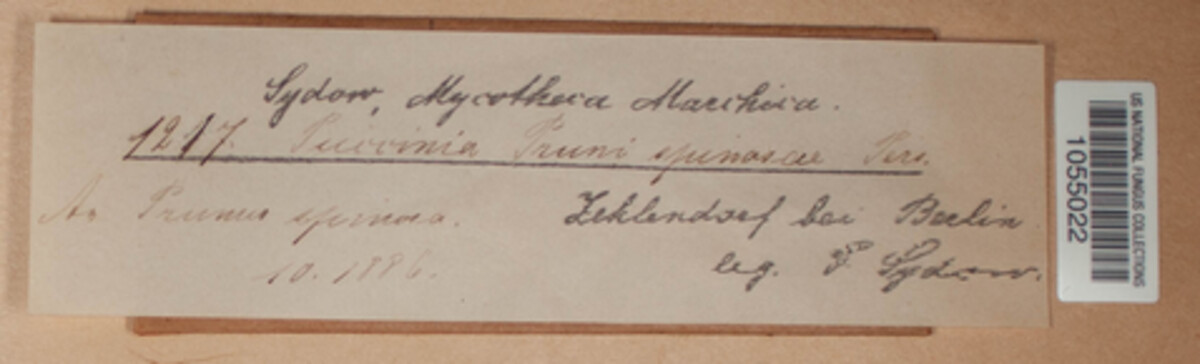 Sydow, Mycotheca Marchica.
1217. Puccinia Pruni spinosae Pers.
An Prunus spinosa. Zehlendorf bei Berlin
10. 1886. leg. P. Sydow.
US NATIONAL FUNGUS COLLECTIONS
1055022